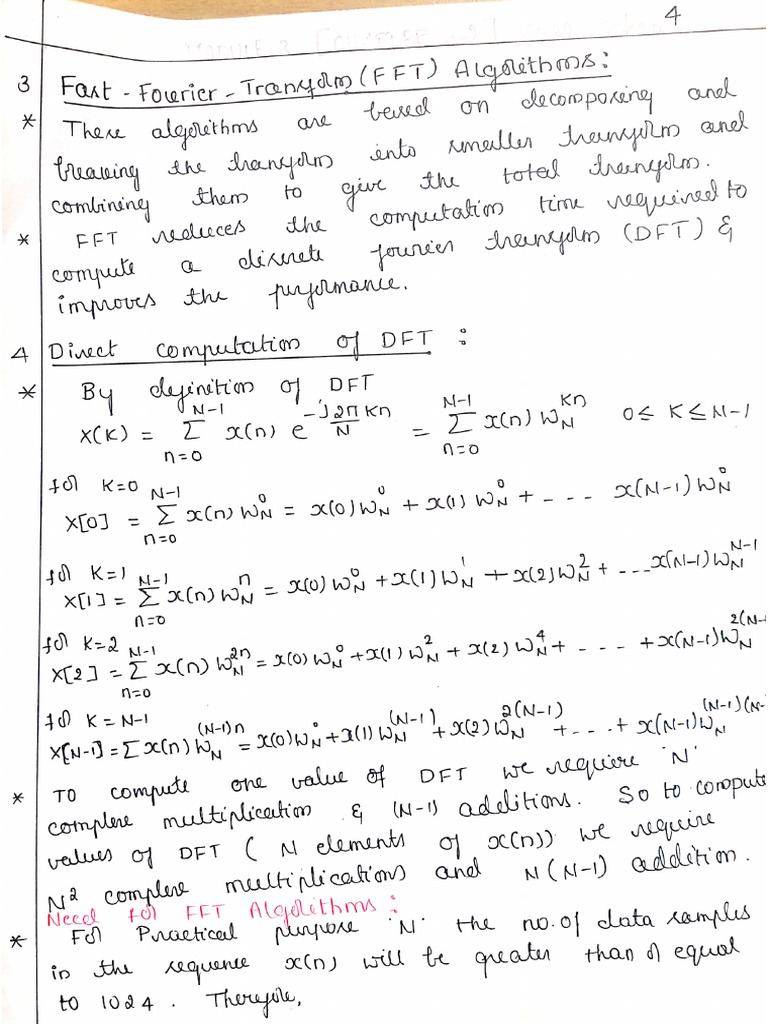 4
3 Fast-Fourier-Transform (FFT) Algorithms:
* These algorithms are based on decomposing and
breaking the transform into smaller transform and
combining them to give the total transform.
* FFT reduces the computation time required to
compute a discrete fourier transform (DFT) &
improves the performance.
4 Direct computation of DFT :
* By definition of DFT
X(K) = Σ_{n=0}^{N-1} x(n) e^{-j2πKn/N} = Σ_{n=0}^{N-1} x(n) W_N^{Kn} 0 ≤ K ≤ N-1
for K=0
X[0] = Σ_{n=0}^{N-1} x(n) W_N^0 = x(0) W_N^0 + x(1) W_N^0 + - - - x(N-1) W_N^0
for K=1
X[1] = Σ_{n=0}^{N-1} x(n) W_N^n = x(0) W_N^0 + x(1) W_N^1 + x(2) W_N^2 + - - - x(N-1) W_N^{N-1}
for K=2
X[2] = Σ_{n=0}^{N-1} x(n) W_N^{2n} = x(0) W_N^0 + x(1) W_N^2 + x(2) W_N^4 + - - - + x(N-1) W_N^{2(N-1
for K = N-1
X[N-1] = Σ x(n) W_N^{(N-1)n} = x(0) W_N^0 + x(1) W_N^{(N-1)} + x(2) W_N^{2(N-1)} + - - - + x(N-1) W_N^{(N-1)(N-
* To compute one value of DFT we require 'N'
complex multiplication & (N-1) additions. So to compute
values of DFT ( N elements of x(n)) we require
N² complex multiplications and N(N-1) addition.
Need for FFT Algorithms:
* For Practical purpose 'N' the no. of data samples
in the sequence x(n) will be greater than or equal
to 1024. Therefore,